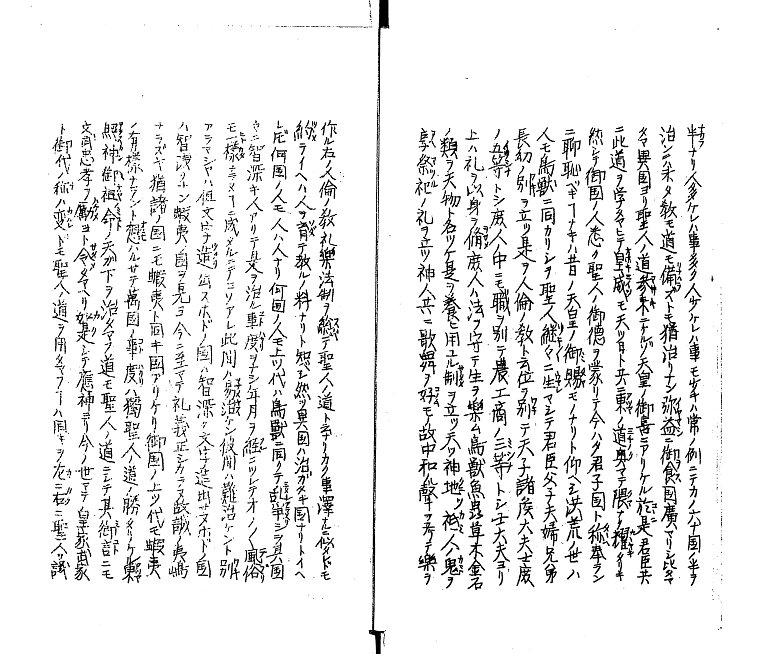 半ナリ人多ケレハ事多ク人少ケレハ事モ少キハ常ノ例ニテカノ大国ノ半ヲ
治シニハ未タ教モ道モ備ズトモ猶治リナン弥益ニ御食国廣マリシ比
タマ異国ヨリ聖人ノ道参来ニケルヲ天皇ノ御喜ニアリケル於是君臣共
ニ此道ヲ学タマヒテ皇威モ天ツ日ト共ニ東ノ道奥マテ隈ナク耀タリキ
然シテ御国ノ人悉ク聖人ノ御徳ヲ蒙リテ今ハタ君子国ト称挙ラン
ニ聊恥ベキコトナキハ昔ノ天皇ノ御賜モノナリト仰ヘシ洪荒ノ世ハ
人モ鳥獣ニ同カリシヲ聖人継々ニ生マシテ君臣父子夫婦兄弟
長幼ノ別ヲ立ツ是ヲ人倫ノ教ト云位ヲ別テ天子諸侯大夫士庶
ノ五等トシ庶人中ニモ職ヲ別テ農工商ノ三等トシ士大夫ヨリ
上ハ礼ヲ以身ヲ脩庶人ハ法ヲ守テ生ヲ樂ム鳥獣魚蟲草木金石
ノ類ヲ天物ト名ツケ是ヲ養ヒ用ユル制ヲ立ツ天ツ神地ツ祇人ノ鬼ヲ
享祭祀ノ礼ヲ立ツ神人共ニ歌舞ヲ好モノ故中和ノ聲ヲ考テ樂ヲ
作ル左ノ人倫ノ教礼樂法制ヲ総テ聖人ノ道ト云リカク事澤ナルニ似タレトモ
約ライヘハ人ヲ育テ教ルノ料ナリト知ヘシ然ツ異国ハ治ガタキ国ナリトイヘ
レ𪜈何国ノ人モ人ハ人ナリ何国ノ人モ上ツ代ハ鳥獣ニ同クテ乱
ニ智深キ人アリテ是ヲ治ル事度ヲナシ年月ヲ経ニツレテオノ〳〵風俗
モ一様ニ成メルニテコソアレ此間ハ易治ケン彼間ハ難治ケント別
アラマシヤハ但文字ヲ造出スホドノ国ハ智深ク文字ヲ造出サヌホドノ国
ハ智深カラヌナン蝦夷ノ国ヲ見ヨ今ニ至マテ礼義正シケラヌ故
ナラズキ猶諸ノ国ニモ蝦夷ト同キ国アリケリ御国ノ上ツ代モ蝦夷
ノ有様ナリケント想ハルサテ萬国ノ事度ハ獨聖人ノ道ノ勝タリケル
照神御祖命ノ天ガ下ヲ治タマフ道モ聖人ノ道ニシテ其御言ニモ
文武忠孝ヲ励ヨト令タマヘリ如是シテ應神ヨリ今ノ世マテ皇家武家
ト御代ノ称ハ変レドモ聖人ノ道ヲ用タマフコトハ同キヲ左ニ右ニ聖人ヲ譏